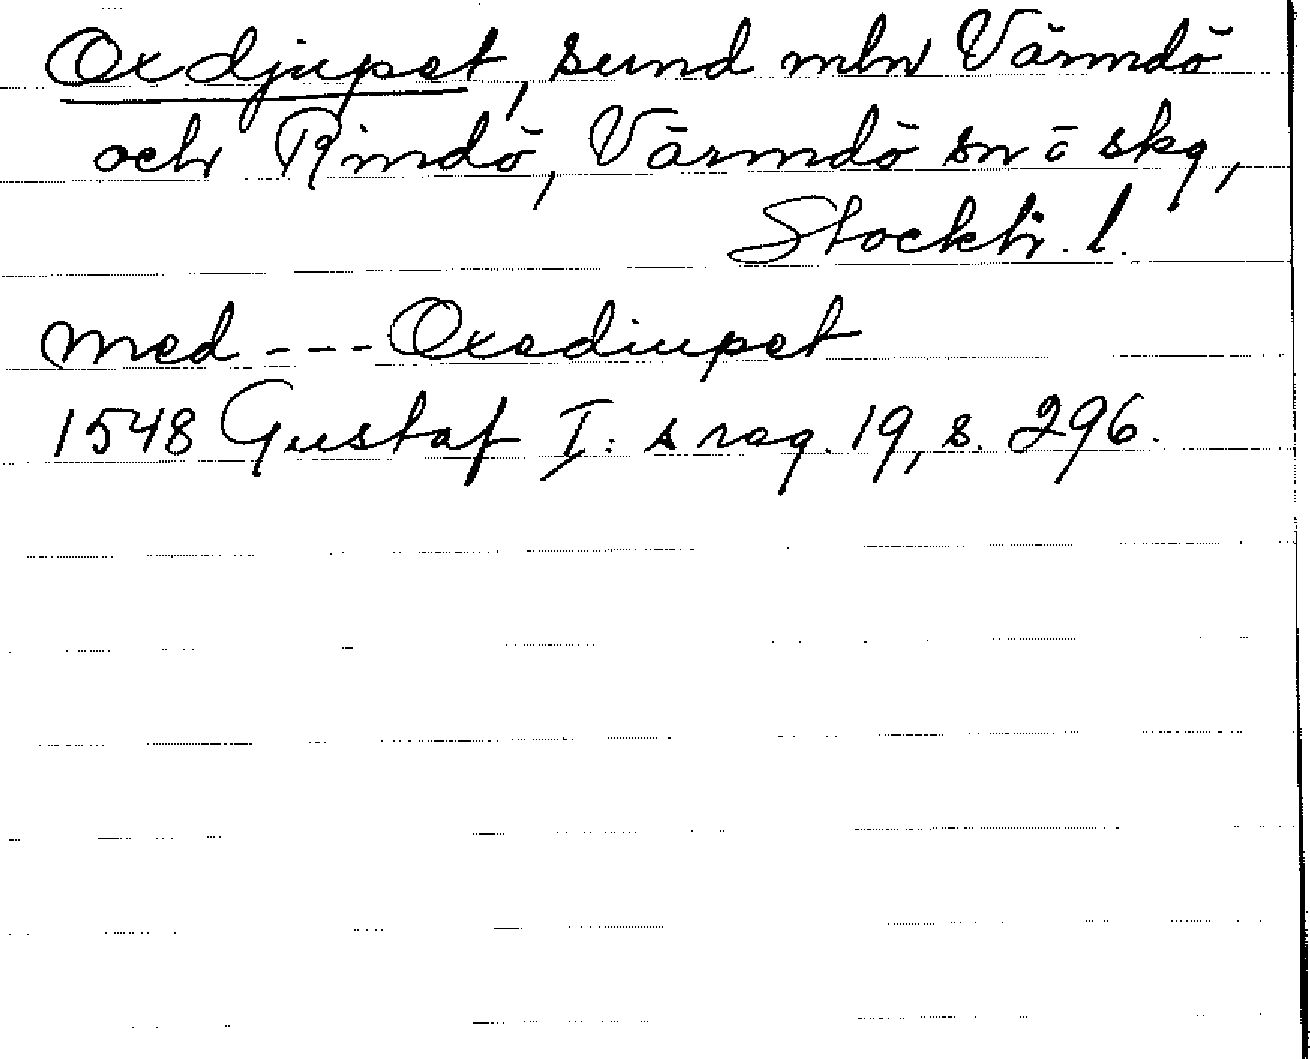 Oxdjupet, sund mln Värmdö
och Rindö, Värmdö sn o skg,
Stockh. l.
med --- Oxediupet
1548 Gustaf I:s reg. 19, s. 296.